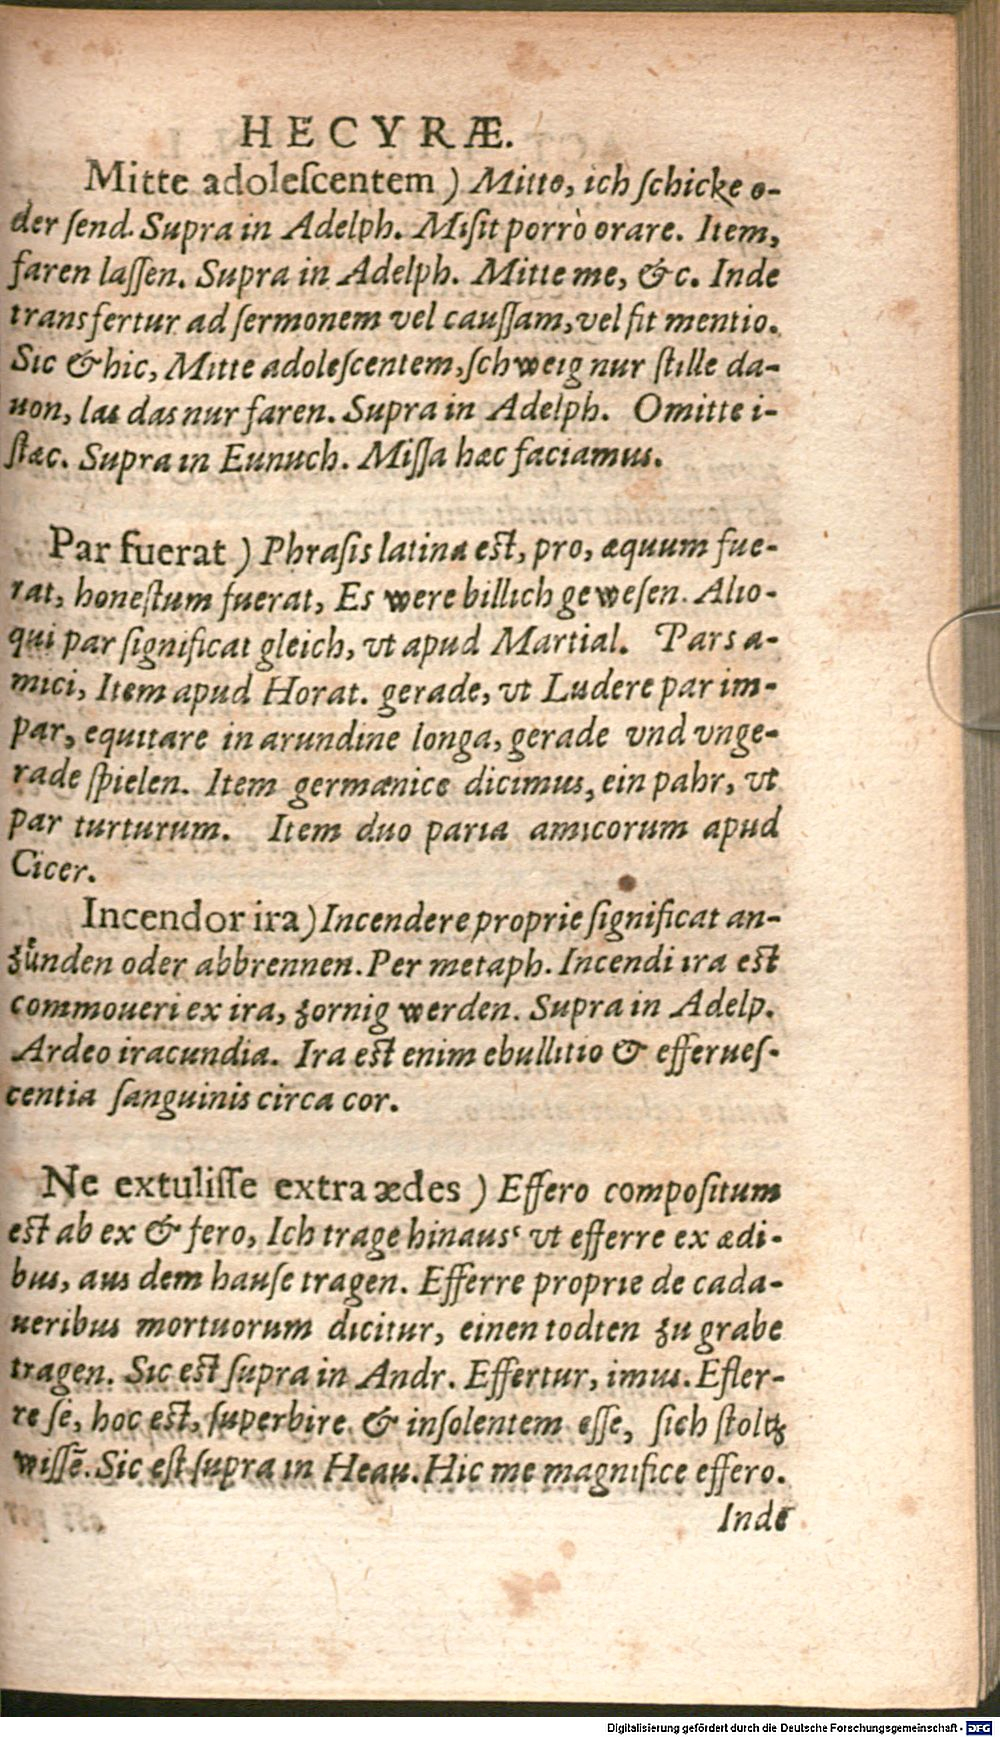 HECYRÆ.
Mitte adoleſcentem ) Mitto, ich ſchicke o-
der ſend. Supra in Adelph. Miſit porrò orare. Item,
faren laſſen. Supra in Adelph. Mitte me, &c. Inde
transfertur ad ſermonem vel cauſſam, vel fit mentio.
Sic & hic, Mitte adoleſcentem, ſchweig nur ſtille da-
uon, las das nur faren. Supra in Adelph. Omitte i-
ſtæc. Supra in Eunuch. Miſſa hæc faciamus.
Par fuerat ) Phraſis latina eſt, pro, æquum fue-
rat, honeſtum fuerat, Es were billich geweſen. Alio-
qui par ſignificat gleich, vt apud Martial. Pars a-
mici, Item apud Horat. gerade, vt Ludere par im-
par, equitare in arundine longa, gerade vnd vnge-
rade ſpielen. Item germanice dicimus, ein pahr, vt
par turturum. Item duo paria amicorum apud
Cicer.
Incendor ira ) Incendere proprie ſignificat an-
zůnden oder abbrennen. Per metaph. Incendi ira eſt
commoueri ex ira, zornig werden. Supra in Adelp.
Ardeo iracundia. Ira eſt enim ebullitio & efferueſ-
centia ſanguinis circa cor.
Ne extuliſſe extra ædes ) Effero compoſitum
eſt ab ex & fero, Ich trage hinaus‘ vt efferre ex ædi-
bus, aus dem hauſe tragen. Efferre proprie de cada-
ueribus mortuorum dicitur, einen todten zu grabe
tragen. Sic eſt ſupra in Andr. Effertur, imus. Effer-
re ſe, hoc eſt, ſuperbire & inſolentem eſſe, ſich ſtoltz
wiſſē. Sic eſt ſupra in Heau. Hic me magnifice effero.
Inde
Digitalisierung gefördert durch die Deutsche Forschungsgemeinschaft - DFG